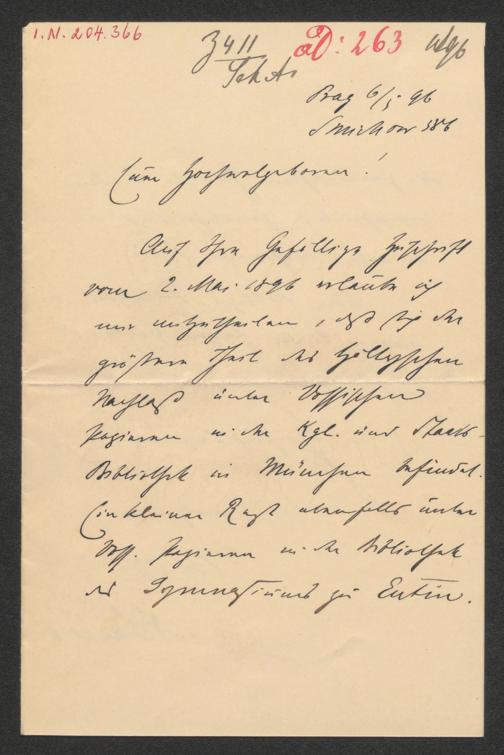 I.N. 204.366
ad: 263
Prag 6/5 96
Smichow 386
Euer Hochwolgeboren!
Auf Ihre Gefällige Zuschrift
vom 2. Mai 1896 erlaube ich
mir mitzutheilen, daß sich der
größere Theil des Höltyschen
Nachlaß unter Vossischen
Papieren in der Kgl. und Staats-
Bibliothek in München befindet.
Ein kleiner Rest ebenfalls unter
Voss. Papieren in der Bibliothek
des Gymnasiums zu Eutin.